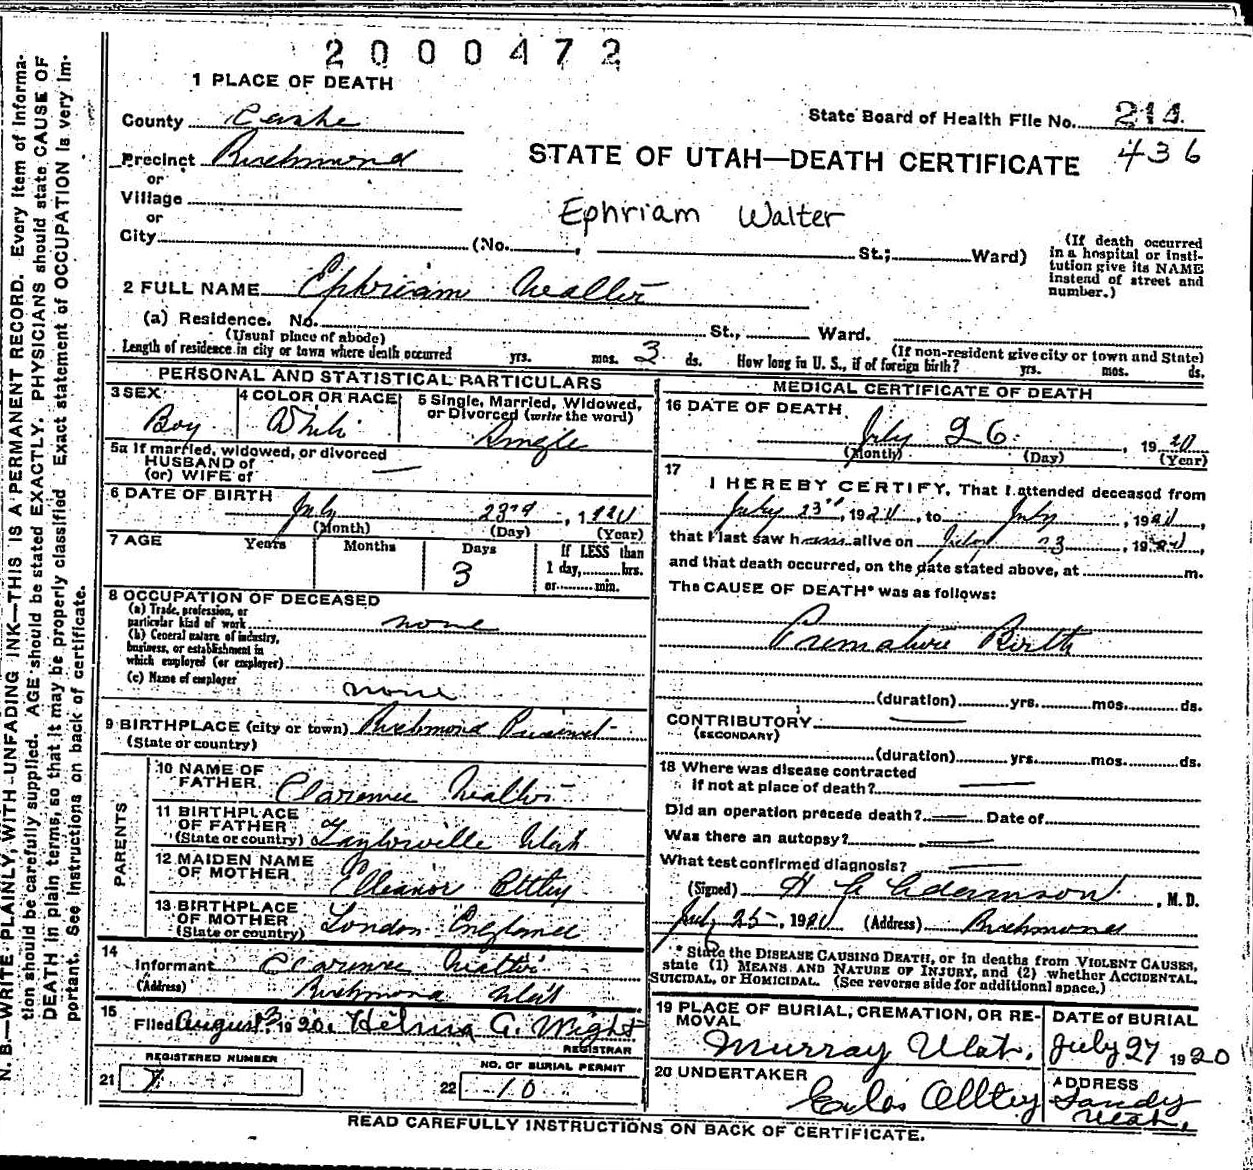 2000472
1 PLACE OF DEATH
County Cashe
State Board of Health File No. 214
436
Precinct Richmond
STATE OF UTAH—DEATH CERTIFICATE
or
Village
or
Ephriam Walter
City (No. , St.; Ward)
(If death occurred in a hospital or institution give its NAME instead of street and number.)
2 FULL NAME Ephriam Walter
(a) Residence. No. St., Ward.
(Usual place of abode)
(If non-resident give city or town and State)
Length of residence in city or town where death occurred yrs. mos. 3 ds. How long in U. S., if of foreign birth? yrs. mos. ds.
PERSONAL AND STATISTICAL PARTICULARS
3 SEX Boy
4 COLOR OR RACE White
5 Single, Married, Widowed, or Divorced (write the word) Single
5a If married, widowed, or divorced
HUSBAND of
(or) WIFE of
6 DATE OF BIRTH July 23rd, 1920
(Month) (Day) (Year)
7 AGE Years Months Days 3
If LESS than 1 day, hrs. or min.
8 OCCUPATION OF DECEASED
(a) Trade, profession, or particular kind of work none
(b) General nature of industry, business, or establishment in which employed (or employer)
(c) Name of employer none
9 BIRTHPLACE (city or town) Richmond Precinct
(State or country)
PARENTS
10 NAME OF FATHER Clarence Walter
11 BIRTHPLACE OF FATHER (State or country) Taylorville Utah
12 MAIDEN NAME OF MOTHER Elleanor Ottley
13 BIRTHPLACE OF MOTHER (State or country) London England
14 Informant Clarence Walter
(Address) Richmond Utah
15 Filed August 3 1920. Helmia G. Wight
REGISTRAR
REGISTERED NUMBER
21 7
NO. OF BURIAL PERMIT
22 10
MEDICAL CERTIFICATE OF DEATH
16 DATE OF DEATH
July 26, 1920
(Month) (Day) (Year)
17 I HEREBY CERTIFY, That I attended deceased from
July 23rd, 1920, to July , 1920,
that I last saw him alive on July 23, 1920,
and that death occurred, on the date stated above, at m.
The CAUSE OF DEATH* was as follows:
Premature Birth
(duration) yrs. mos. ds.
CONTRIBUTORY
(SECONDARY)
(duration) yrs. mos. ds.
18 Where was disease contracted
if not at place of death?
Did an operation precede death? Date of
Was there an autopsy?
What test confirmed diagnosis?
(Signed) H G Adamson, M.D.
July 25, 1920 (Address) Richmond
* State the DISEASE CAUSING DEATH, or in deaths from VIOLENT CAUSES, state (1) MEANS AND NATURE OF INJURY, and (2) whether ACCIDENTAL, SUICIDAL, or HOMICIDAL. (See reverse side for additional space.)
19 PLACE OF BURIAL, CREMATION, OR REMOVAL
Murray Utah.
DATE of BURIAL
July 27 1920
20 UNDERTAKER
Ottley
ADDRESS
Sandy
Utah,
READ CAREFULLY INSTRUCTIONS ON BACK OF CERTIFICATE.
N. B.—WRITE PLAINLY, WITH UNFADING INK—THIS IS A PERMANENT RECORD. Every item of information should be carefully supplied. AGE should be stated EXACTLY. PHYSICIANS should state CAUSE OF DEATH in plain terms, so that it may be properly classified. Exact statement of OCCUPATION is very important. See instructions on back of certificate.